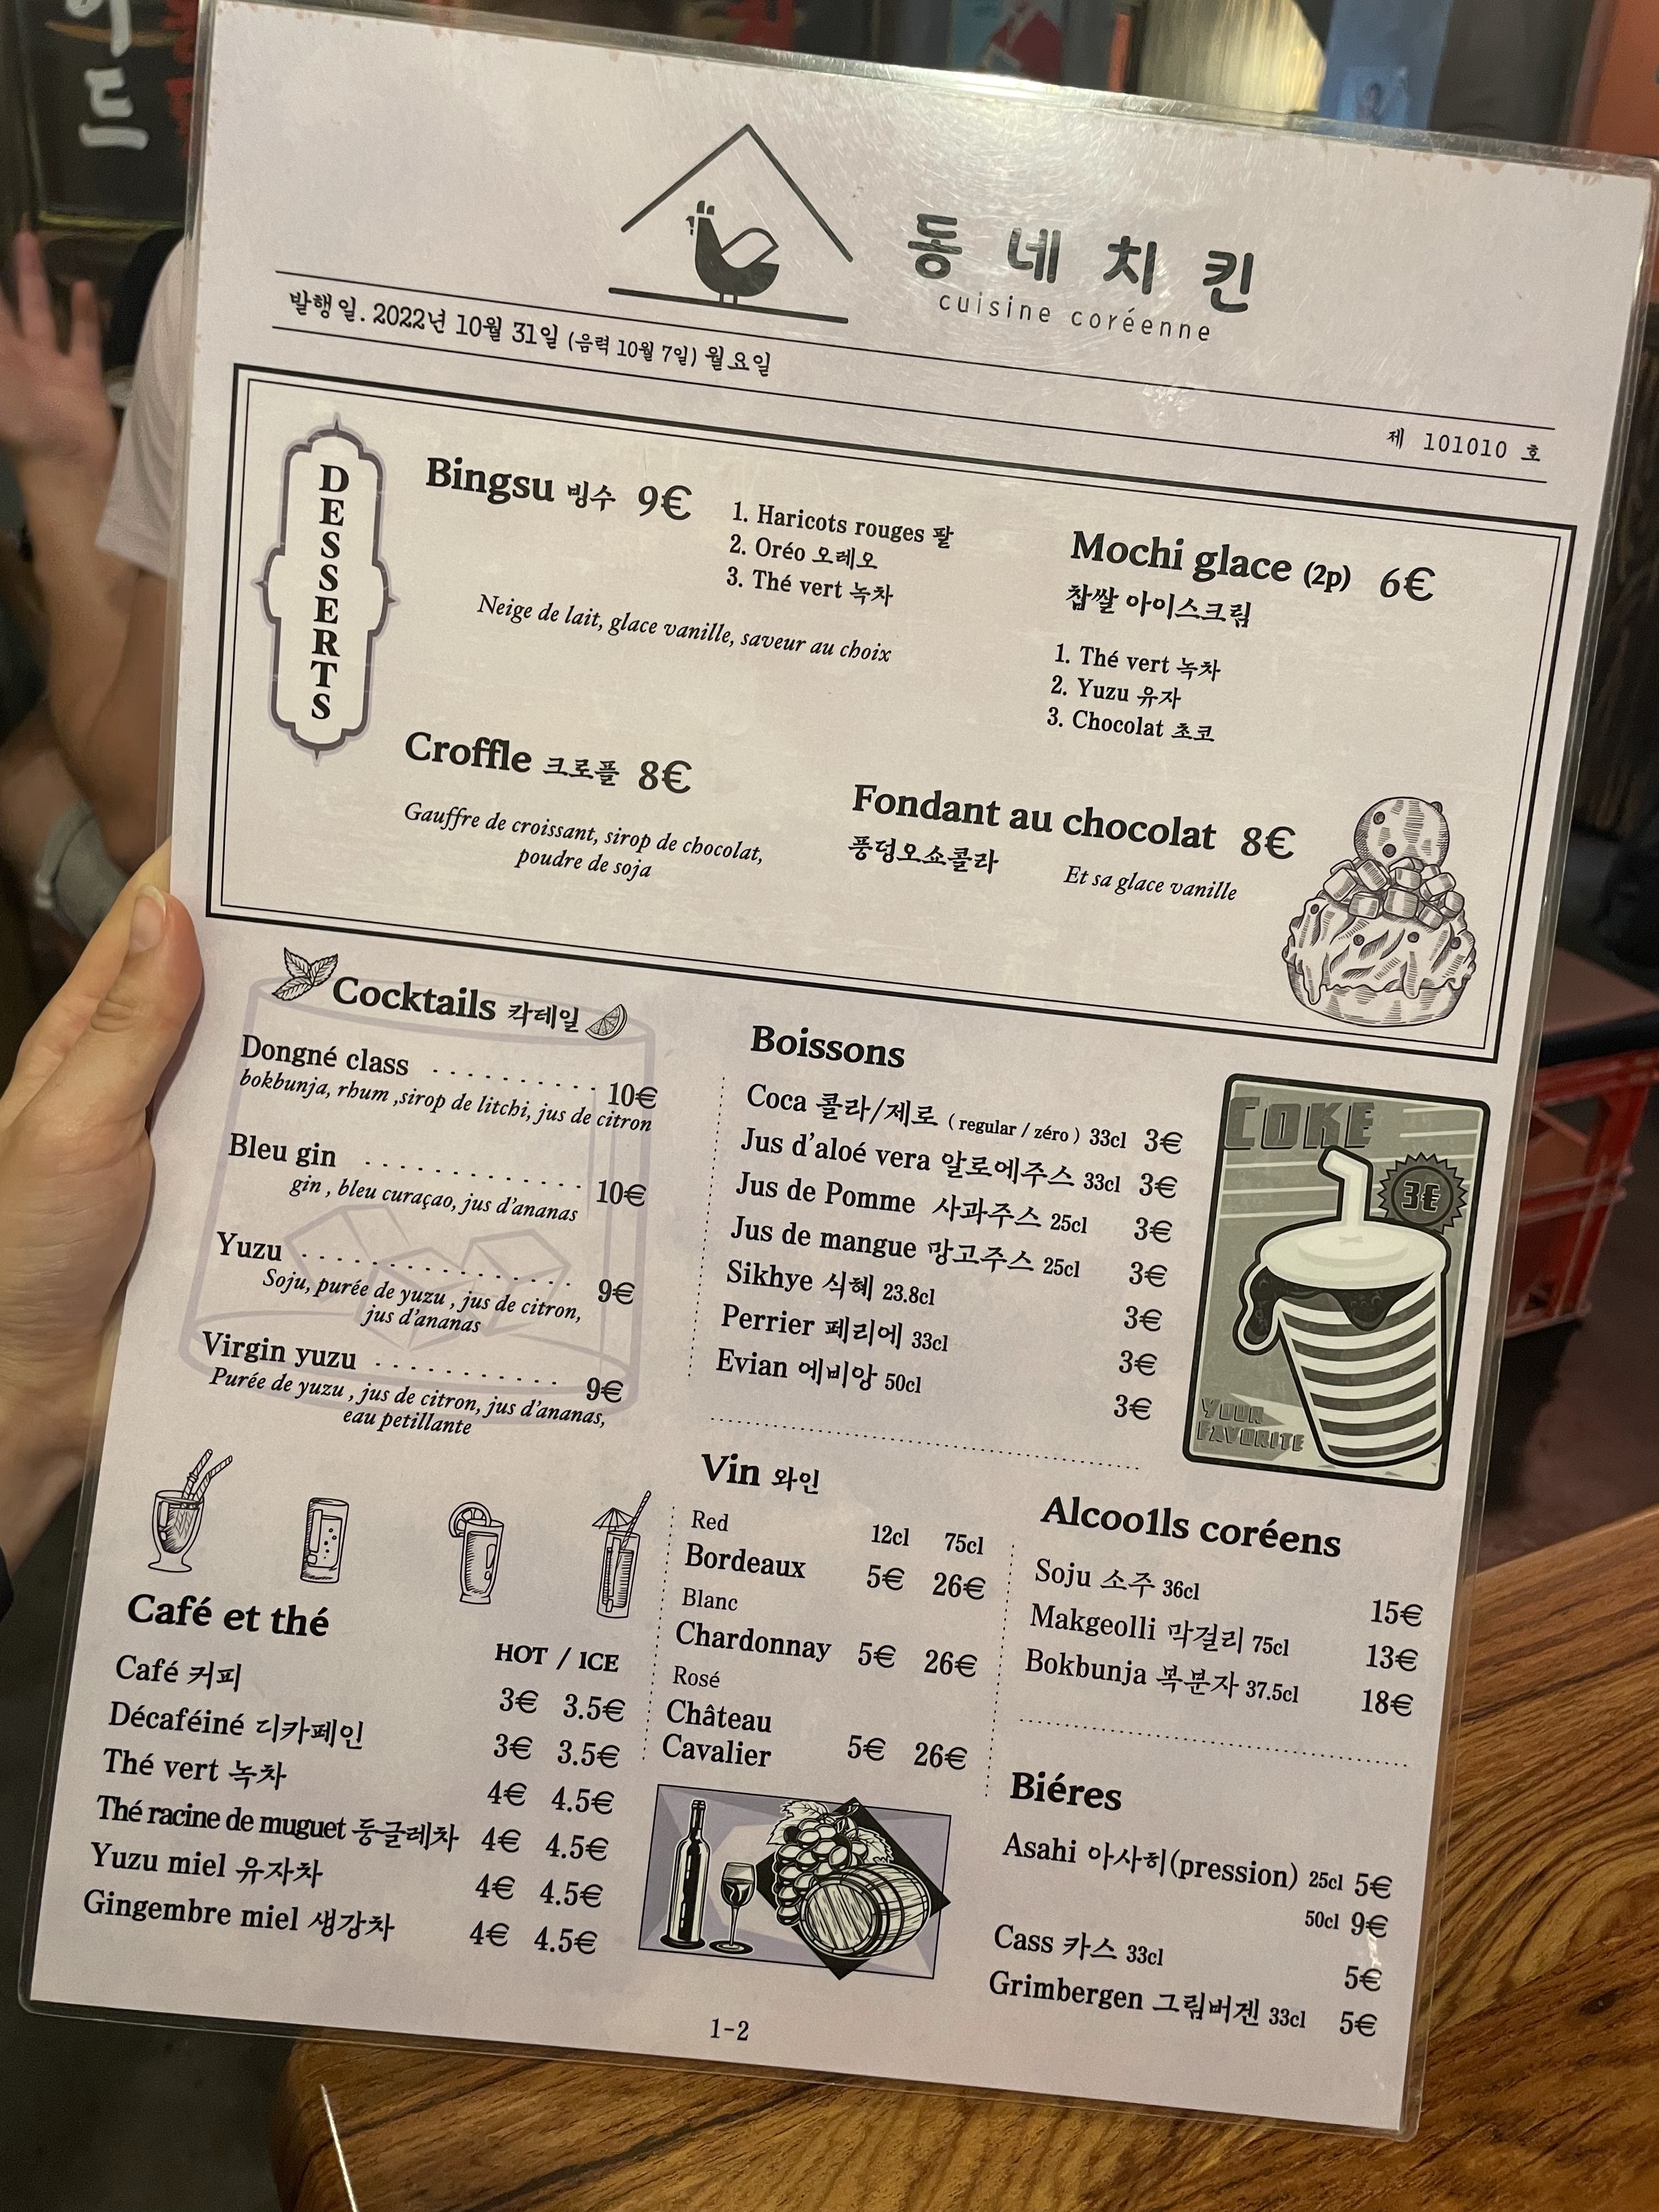 동네치킨
cuisine coréenne
발행일. 2022년 10월 31일 (음력 10월 7일) 월요일
제 101010 호
DESSERTS
Bingsu 빙수 9€
1. Haricots rouges 팥
2. Oréo 오레오
3. Thé vert 녹차
Neige de lait, glace vanille, saveur au choix
Mochi glace (2p) 6€
찹쌀 아이스크림
1. Thé vert 녹차
2. Yuzu 유자
3. Chocolat 초코
Croffle 크로플 8€
Gauffre de croissant, sirop de chocolat,
poudre de soja
Fondant au chocolat 8€
퐁덩오쇼콜라
Et sa glace vanille
Cocktails 칵테일
Dongné class .......... 10€
bokbunja, rhum ,sirop de litchi, jus de citron
Bleu gin ............. 10€
gin , bleu curaçao, jus d'ananas
Yuzu ................ 9€
Soju, purée de yuzu , jus de citron,
jus d'ananas
Virgin yuzu ........... 9€
Purée de yuzu , jus de citron, jus d'ananas,
eau petillante
Boissons
Coca 콜라/제로 ( regular / zéro ) 33cl 3€
Jus d'aloé vera 알로에주스 33cl 3€
Jus de Pomme 사과주스 25cl 3€
Jus de mangue 망고주스 25cl 3€
Sikhye 식혜 23.8cl 3€
Perrier 페리에 33cl 3€
Evian 에비앙 50cl 3€
COKE
3€
YOUR
FAVORITE
Café et thé
HOT / ICE
Café 커피 3€ 3.5€
Décaféiné 디카페인 3€ 3.5€
Thé vert 녹차 4€ 4.5€
Thé racine de muguet 둥글레차 4€ 4.5€
Yuzu miel 유자차 4€ 4.5€
Gingembre miel 생강차 4€ 4.5€
Vin 와인
Red 12cl 75cl
Bordeaux 5€ 26€
Blanc
Chardonnay 5€ 26€
Rosé
Château
Cavalier 5€ 26€
Alcoo1ls coréens
Soju 소주 36cl 15€
Makgeolli 막걸리 75cl 13€
Bokbunja 복분자 37.5cl 18€
Biéres
Asahi 아사히(pression) 25cl 5€
50cl 9€
Cass 카스 33cl 5€
Grimbergen 그림버겐 33cl 5€
1-2